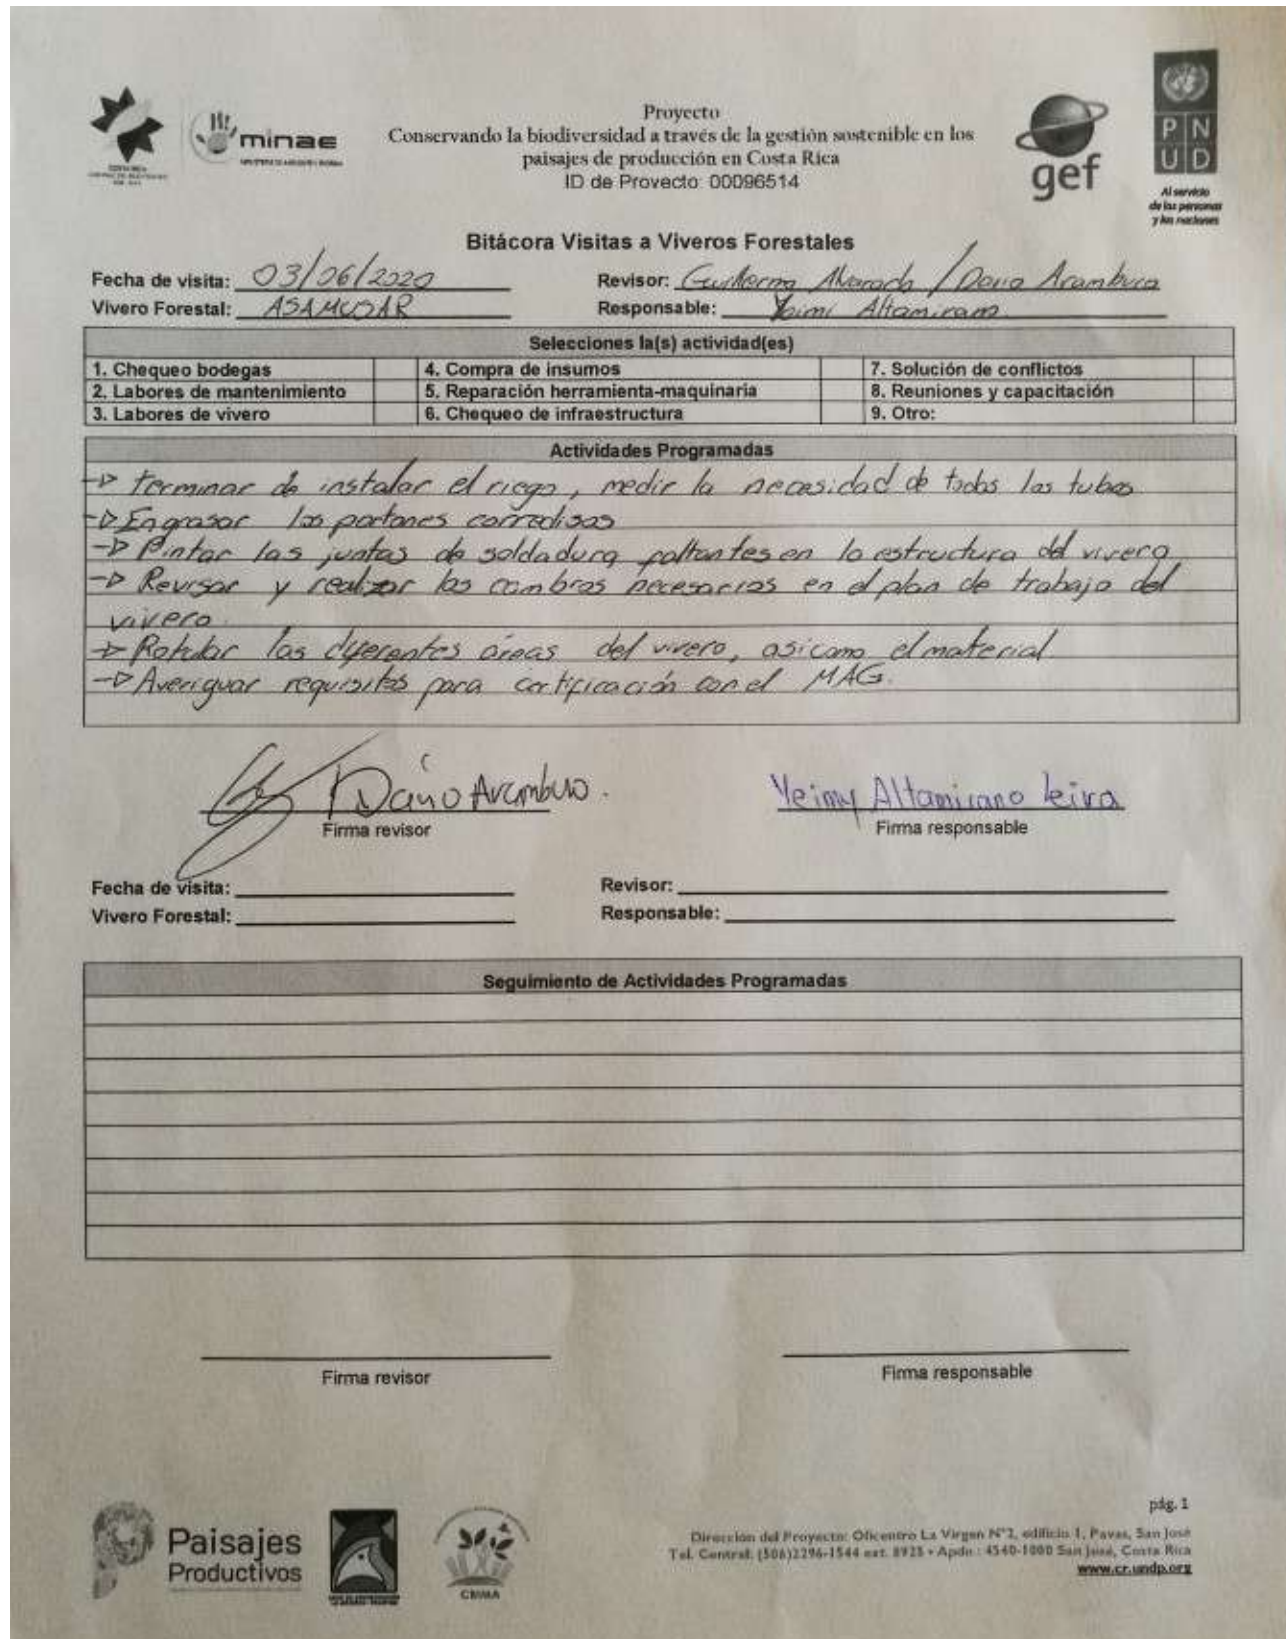 minae
Proyecto
Conservando la biodiversidad a través de la gestión sostenible en los
paisajes de producción en Costa Rica
ID de Proyecto: 00096514
gef
PNUD
Al servicio
de las personas
y las naciones
Bitácora Visitas a Viveros Forestales
Fecha de visita: 03/06/2020 Revisor: Guillermo Alvarado / Dario Aramburo
Vivero Forestal: ASAMUSAR Responsable: Yeimi Altamirano
Selecciones la(s) actividad(es)
1. Chequeo bodegas 4. Compra de insumos 7. Solución de conflictos
2. Labores de mantenimiento 5. Reparación herramienta-maquinaria 8. Reuniones y capacitación
3. Labores de vivero 6. Chequeo de infraestructura 9. Otro:
Actividades Programadas
→ Terminar de instalar el riego, medir la necesidad de todos los tubos
→ Engrasar los portones corredisos
→ Pintar las juntas de soldadura faltantes en la estructura del vivero
→ Revisar y realizar los cambios necesarios en el plan de trabajo del
vivero.
→ Rotular las diferentes áreas del vivero, asi como el material
→ Averiguar requisitos para certificación con el MAG.
Dario Aramburo. Yeimy Altamirano Leiva
Firma revisor Firma responsable
Fecha de visita: Revisor:
Vivero Forestal: Responsable:
Seguimiento de Actividades Programadas
Firma revisor Firma responsable
pág. 1
Paisajes
Productivos
CRIMA
Dirección del Proyecto: Oficentro La Virgen N°2, edificio 1, Pavas, San José
Tel. Central: (506)2296-1544 ext. 8925 • Apdo.: 4540-1000 San José, Costa Rica
www.cr.undp.org